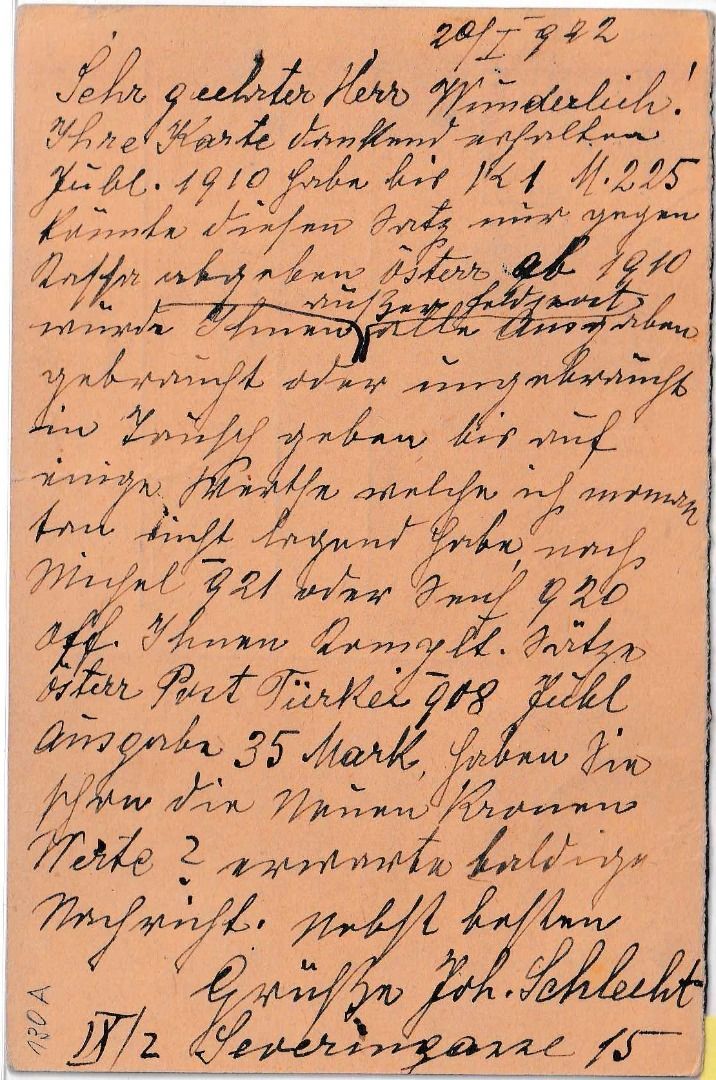 20/I 922
Sehr geehrter Herr Wunderlich!
Ihre Karte dankend erhalten
Jubl. 1910 habe bis K 1 M. 225
könnte diesen Satz nur gegen
Kassa abgeben österr ab 1910
außer Feldpost
würde Ihnen alle Ausgaben
gebraucht oder ungebraucht
in Tausch geben bis auf
einige Werthe welche ich momen
tan nicht lagend habe, nach
Michel 921 oder Senf 920
off. Ihnen Komplt. Sätze
österr Post Türkei 908 Jubl
Ausgabe 35 Mark, haben Sie
schon die Neuen Kronen
Werte? erwarte baldige
Nachricht. Nebst besten
Grüßße Joh. Schlecht
IX/2 Severingasse 15
130A